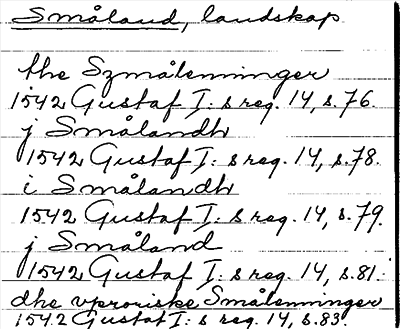 Småland, landskap
the Szmålenninger
1542 Gustaf I: s reg. 14, s. 76.
j Smålandh
1542 Gustaf I: s reg. 14, s. 78.
i Smålandh
1542 Gustaf I: s reg. 14, s. 79.
j Småland
1542 Gustaf I: s reg. 14, s. 81.
dhe vproriske Smålenninger
1542 Gustaf I: s reg. 14, s. 83